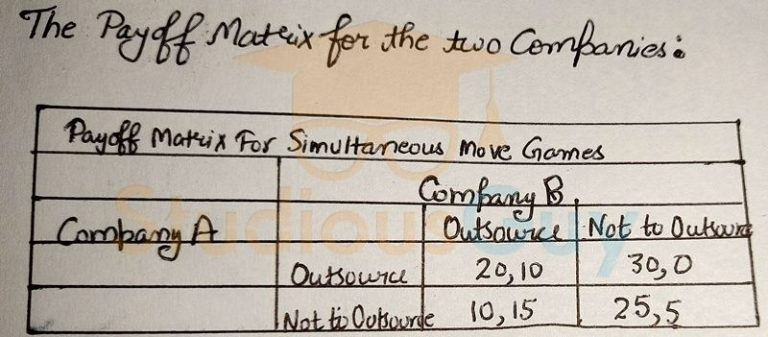 The Payoff Matrix for the two Companies:
Payoff Matrix For Simultaneous Move Games
Company B
Company A Outsource Not to Outsource
Outsource 20,10 30,0
Not to Outsourde 10,15 25,5
StudiousGuy